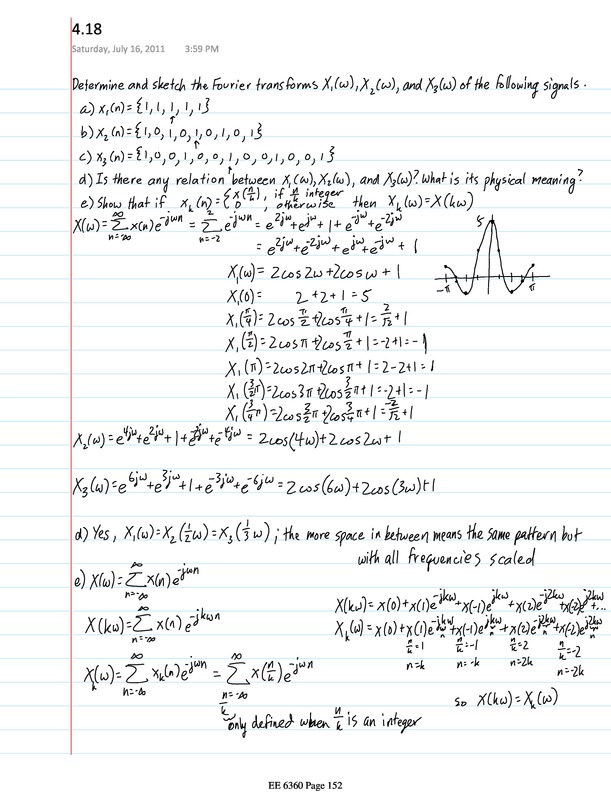 4.18
Saturday, July 16, 2011 3:59 PM
Determine and sketch the Fourier transforms X₁(ω), X₂(ω), and X₃(ω) of the following signals.
a) x₁(n) = {1, 1, 1, 1, 1}
↑
b) x₂(n) = {1, 0, 1, 0, 1, 0, 1, 0, 1}
↑
c) x₃(n) = {1, 0, 0, 1, 0, 0, 1, 0, 0, 1, 0, 0, 1}
↑
d) Is there any relation between X₁(ω), X₂(ω), and X₃(ω)? What is its physical meaning?
e) Show that if x_k(n) = { x(n/k), if n/k integer
0, otherwise then X_k(ω) = X(kω)
X(ω) = Σ_{n=-∞}^{∞} x(n)e^{-jωn} = Σ_{n=-2}^{2} e^{-jωn} = e^{2jω} + e^{jω} + 1 + e^{-jω} + e^{-2jω}
= e^{2jω} + e^{-2jω} + e^{jω} + e^{-jω} + 1
X₁(ω) = 2cos2ω + 2cosω + 1
X₁(0) = 2 + 2 + 1 = 5
X₁(π/4) = 2cos π/2 + 2cos π/4 + 1 = 2/√2 + 1
X₁(π/2) = 2cosπ + 2cos π/2 + 1 = -2 + 1 = -1
X₁(π) = 2cos2π + 2cosπ + 1 = 2 - 2 + 1 = 1
X₁(3/2 π) = 2cos3π + 2cos 3/2 π + 1 = -2 + 1 = -1
X₁(3/4 π) = 2cos 3/2 π + 2cos 3/4 π + 1 = -2/√2 + 1
5
-π π
X₂(ω) = e^{4jω} + e^{2jω} + 1 + e^{-2jω} + e^{-4jω} = 2cos(4ω) + 2cos2ω + 1
X₃(ω) = e^{6jω} + e^{3jω} + 1 + e^{-3jω} + e^{-6jω} = 2cos(6ω) + 2cos(3ω) + 1
d) Yes, X₁(ω) = X₂(1/2 ω) = X₃(1/3 ω); the more space in between means the same pattern but
with all frequencies scaled
e) X(ω) = Σ_{n=-∞}^{∞} x(n)e^{-jωn}
X(kω) = Σ_{n=-∞}^{∞} x(n)e^{-jkωn}
X_k(ω) = Σ_{n=-∞}^{∞} x_k(n)e^{-jωn} = Σ_{n=-∞}^{∞} x(n/k)e^{-jωn}
n/k
only defined when n/k is an integer
X(kω) = x(0) + x(1)e^{-jkω} + x(-1)e^{jkω} + x(2)e^{-j2kω} + x(-2)e^{j2kω} + ...
X_k(ω) = x(0) + x(1)e^{-jkω} + x(-1)e^{jkω} + x(2)e^{-j2kω} + x(-2)e^{j2kω}
n/k = 1 n/k = -1 n/k = 2 n/k = -2
n=k n=-k n=2k n=-2k
so X(kω) = X_k(ω)
EE 6360 Page 152